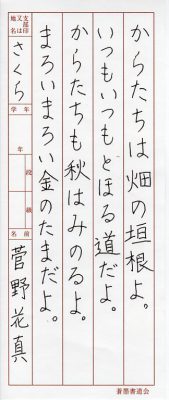 からたちは畑の垣根よ。
いつもいつもとほる道だよ。
からたちも秋はみのるよ。
まろいまろい金のたまだよ。
支部印
又は
地区名
さくら
学年
年
段
級
名前
菅野花真
蒼墨書道会